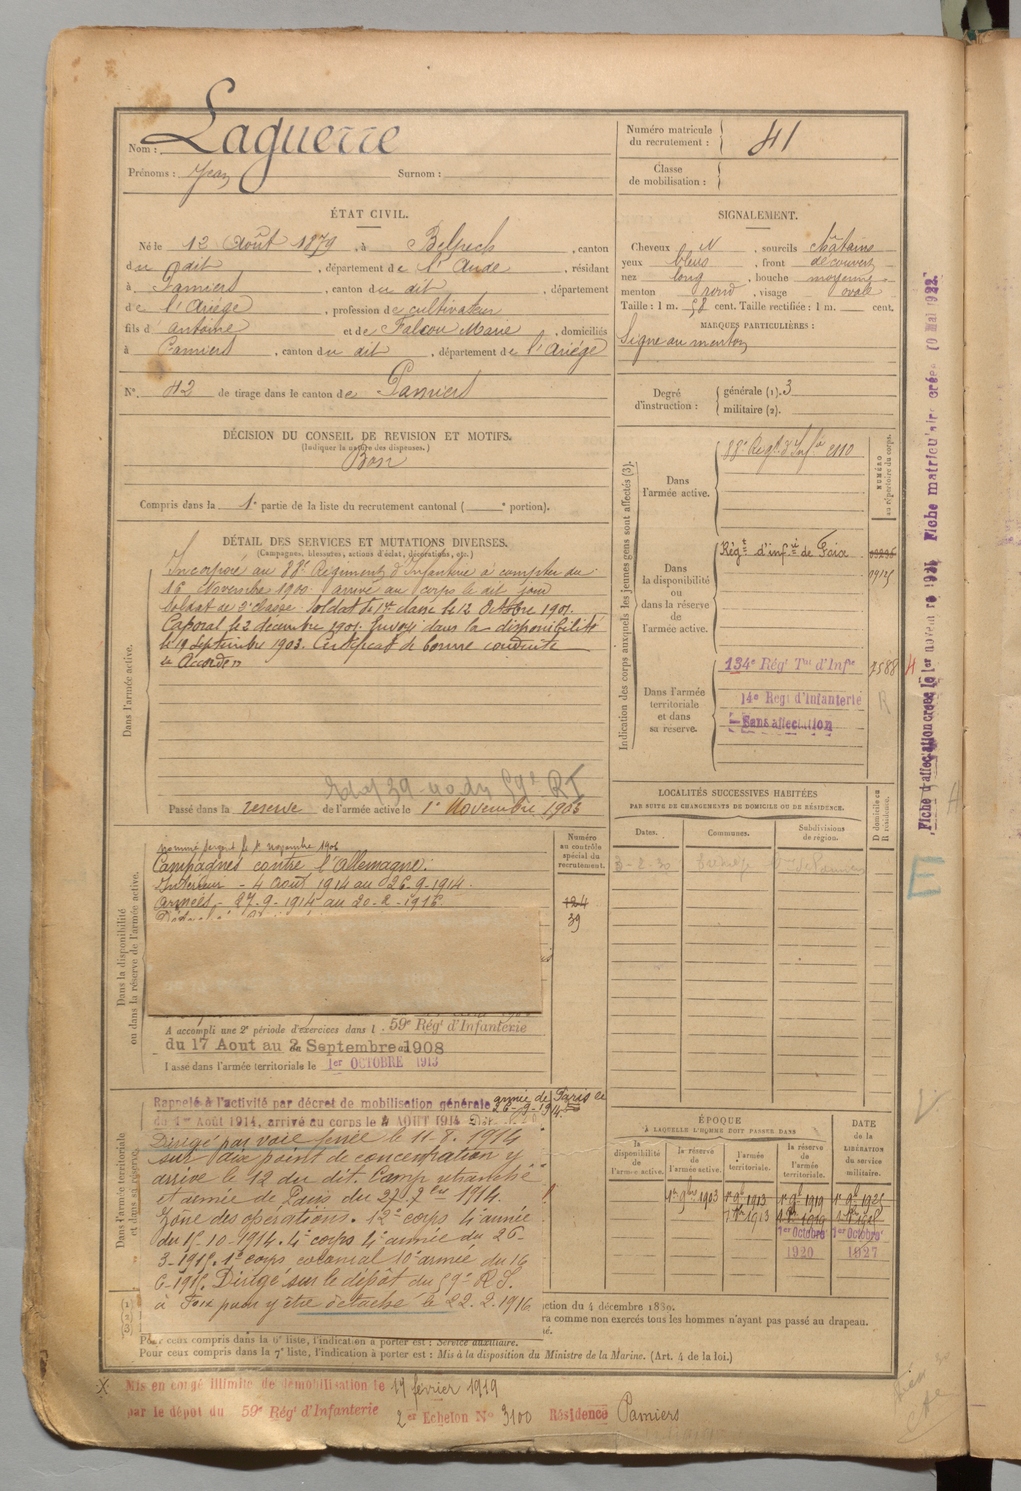 Nom : Laguerre
Prénoms : Jean Surnom :
Numéro matricule du recrutement : 41
Classe de mobilisation :
ÉTAT CIVIL.
Né le 12 Août 1879, à Belpech, canton
du dit, département de l'Aude, résidant
à Pamiers, canton du dit, département
de l'Ariège, profession de cultivateur
fils d'Antoine et de Falcou Marie, domiciliés
à Pamiers, canton du dit, département de l'Ariège
N° 42 de tirage dans le canton de Pamiers
SIGNALEMENT.
Cheveux N, sourcils châtains
yeux bleus, front découvert
nez long, bouche moyenne
menton rond, visage ovale
Taille : 1 m. 58 cent. Taille rectifiée : 1 m. cent.
MARQUES PARTICULIÈRES :
Signe au menton
Degré d'instruction : générale (1). 3
militaire (2).
DÉCISION DU CONSEIL DE REVISION ET MOTIFS.
(Indiquer la nature des dispenses.)
Bon
Compris dans la 1e partie de la liste du recrutement cantonal ( e portion).
DÉTAIL DES SERVICES ET MUTATIONS DIVERSES.
(Campagnes, blessures, actions d'éclat, décorations, etc.)
Dans l'armée active.
Incorporé au 88e Régiment d'Infanterie à compter du
16 Novembre 1900 arrivé au corps le dit jour
Soldat de 2e classe. Soldat de 1re classe le 12 Octobre 1901.
Caporal le 2 décembre 1901. Envoyé dans la disponibilité
le 19 Septembre 1903. Certificat de bonne conduite
" Accordé "
59e RT
Passé dans la réserve de l'armée active le 1er Novembre 1903
Indication des corps auxquels les jeunes gens sont affectés (3).
NUMÉRO au répertoire du corps.
Dans l'armée active.
88e Régt d'Infie
Dans la disponibilité ou dans la réserve de l'armée active.
Régt d'infie de Foix
Dans l'armée territoriale et dans sa réserve.
134e Rég Tal d'Infie 2588
14e Régt d'Infanterie
Sans affectation
R
LOCALITÉS SUCCESSIVES HABITÉES
PAR SUITE DE CHANGEMENTS DE DOMICILE OU DE RÉSIDENCE.
Dates. Communes. Subdivisions de région. D domicile ou R résidence.
Dans la disponibilité ou dans la réserve de l'armée active.
Numéro au contrôle spécial du recrutement.
nommé sergent le 1er novembre 1906
Campagnes contre l'Allemagne :
Intérieur - 4 Août 1914 au 26-9-1914.
Armées - 27-9-1914 au 20-2-1916
124
39
A accompli une 2e période d'exercices dans l 59e Rég' d'Infanterie
du 17 Aout au 2 Septembre 1908
Passé dans l'armée territoriale le 1er OCTOBRE 1913
Dans l'armée territoriale et dans sa réserve.
Rappelé à l'activité par décret de mobilisation générale
du 1er Août 1914, arrivé au corps le 4 AOUT 1914
armée de Paris le
26-9-1914
Dirigé par voie ferrée le 11.8.1914
sur un point de concentration y
arrive le 12 du dit. Camp retranché
et armée de Paris du 27 7bre 1914.
Zône des opérations. 12e corps 4e armée
du 15-10-1914. 4e corps 4e armée du 26-
3-1915. 1er corps colonial 10e armée du 16
6-1915. Dirigé sur le dépôt du 59e R.I.
à Foix pour y être détaché le 22.2.1916
ÉPOQUE
À LAQUELLE L'HOMME DOIT PASSER DANS
la disponibilité de l'armée active.
la réserve de l'armée active.
l'armée territoriale.
la réserve de l'armée territoriale.
DATE de la LIBÉRATION du service militaire.
1er 9bre 1903 1er 9b 1913 1er 9b 1919 1er 9b 1925
1er Octobre 1920
1er Octobre 1927
(1)
(2)
(3)
ction du 4 décembre 1880.
ra comme non exercés tous les hommes n'ayant pas passé au drapeau.
Pour ceux compris dans la 6e liste, l'indication à porter est : Service auxiliaire.
Pour ceux compris dans la 7e liste, l'indication à porter est : Mis à la disposition du Ministre de la Marine. (Art. 4 de la loi.)
Mis en congé illimité de démobilisation le 19 février 1919
par le dépôt du 59e Rég' d'Infanterie 2er Echelon No 3100 Résidence Pamiers